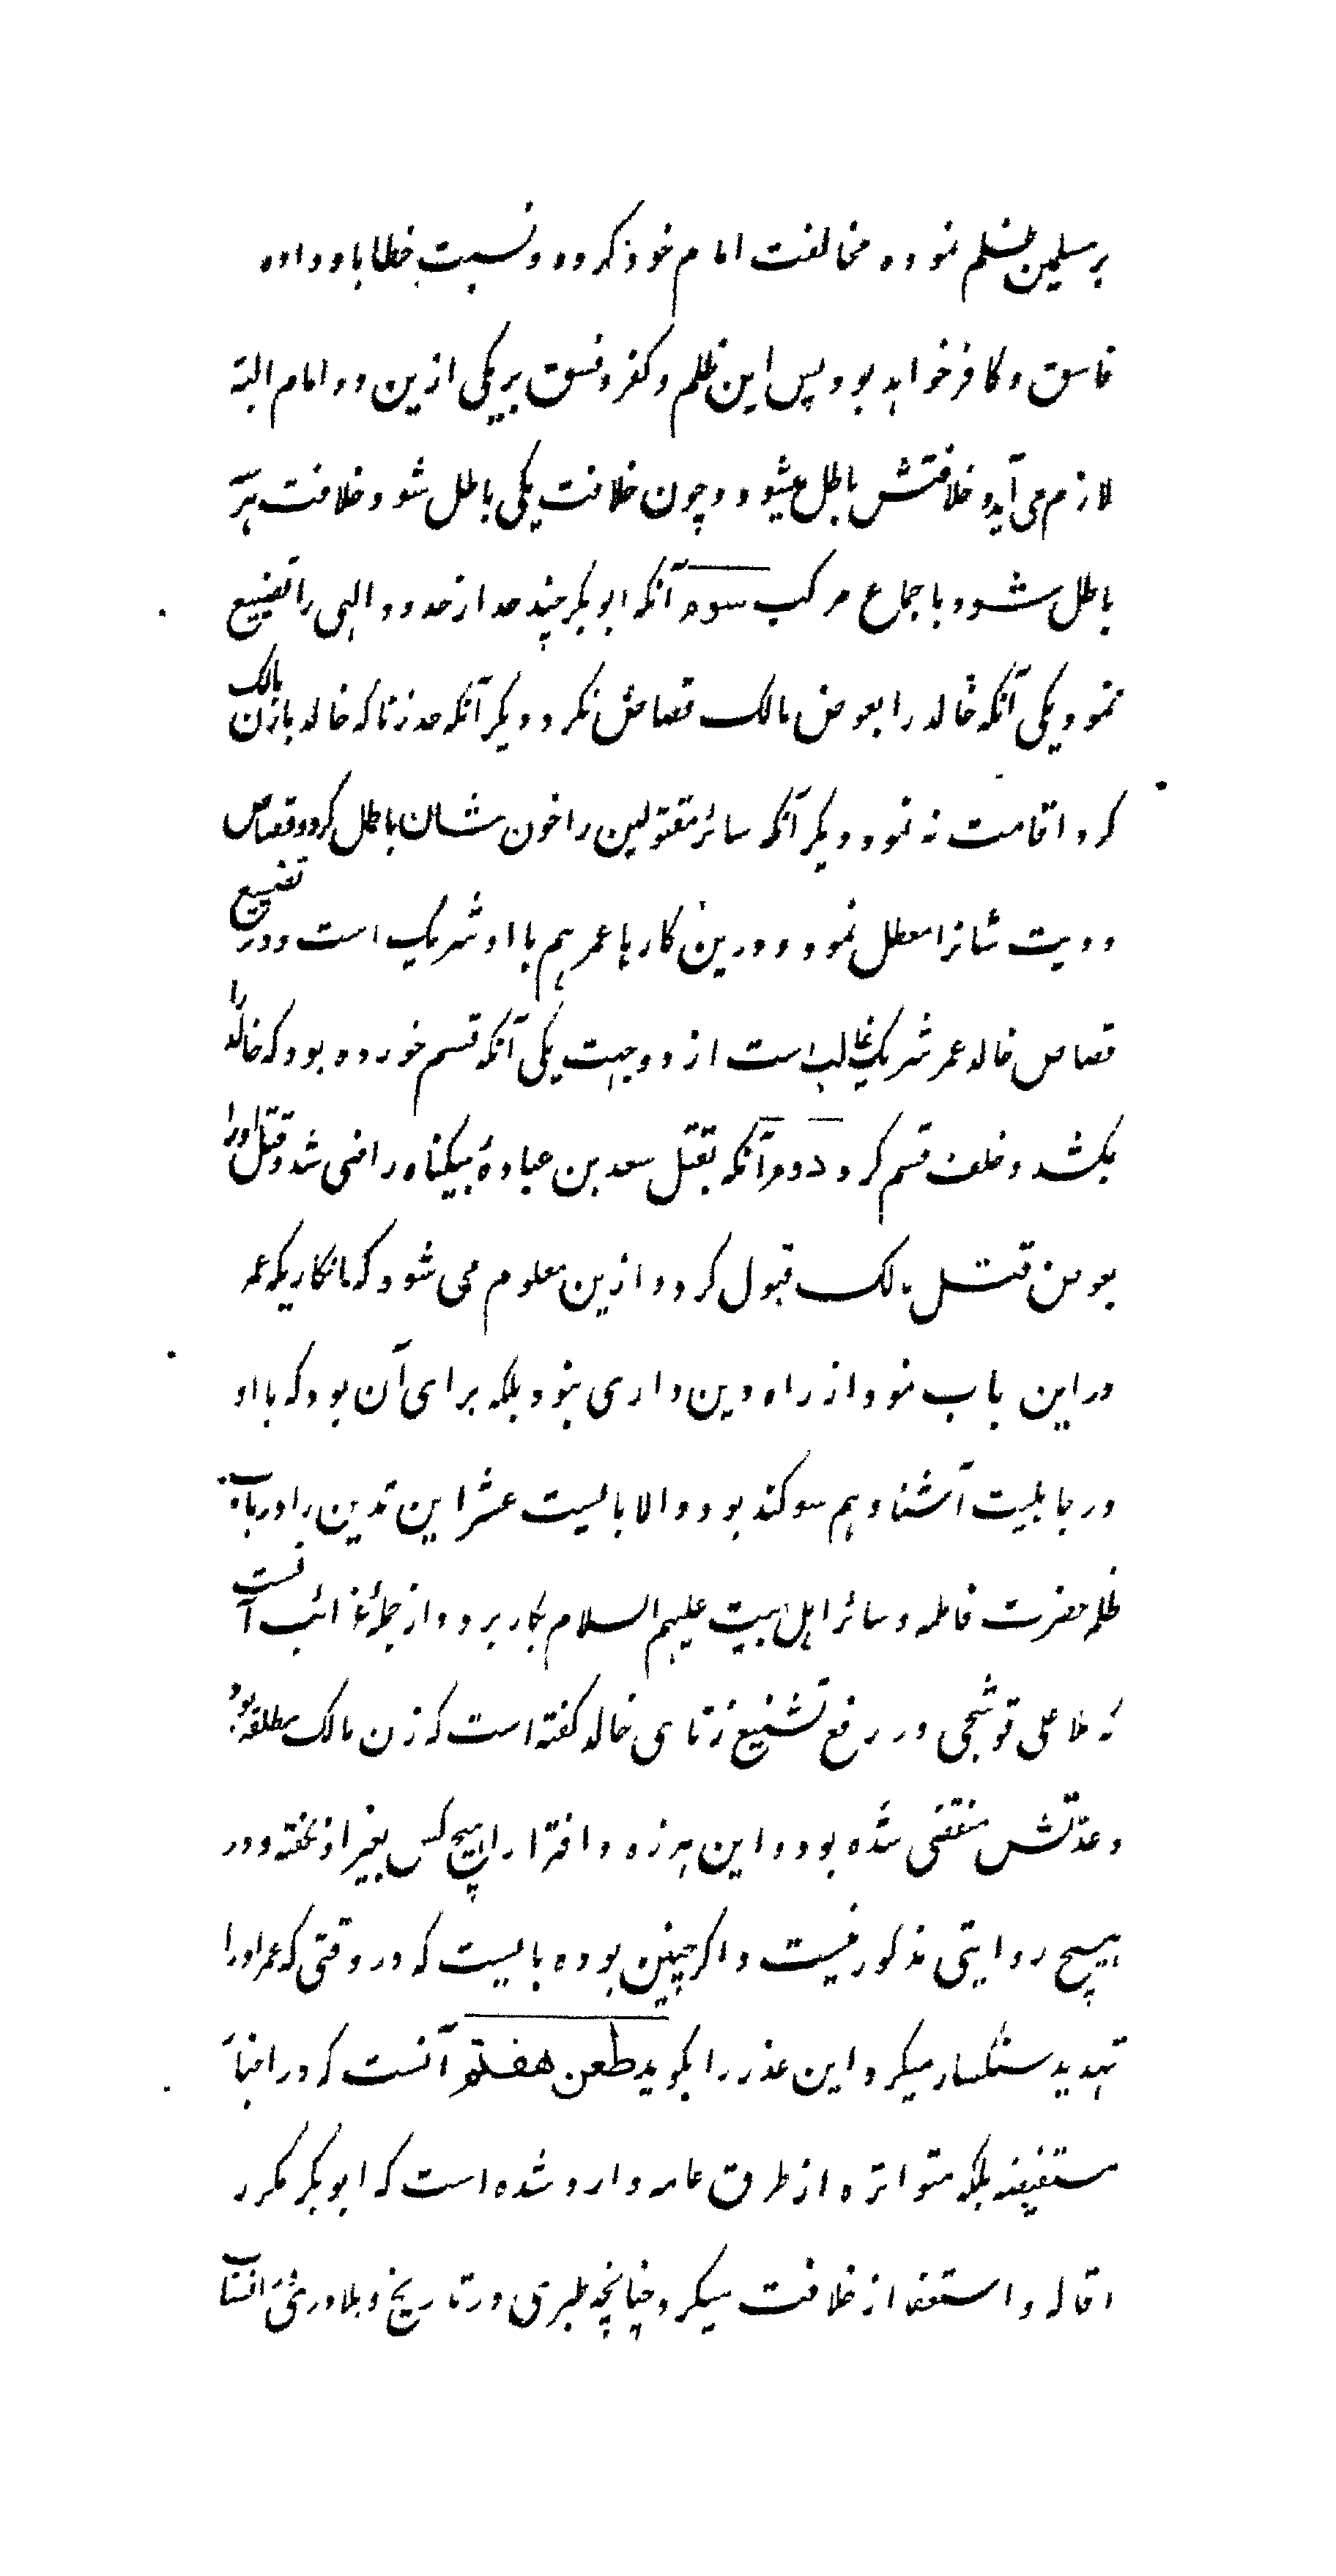 بر مسلمین ظلم نموده مخالفت امام خود کرده و نسبت خطا باو داده
فاسق و کافر خواهد بود پس این ظلم و کفر و فسق بر یکی ازین دو امام البته
لازم می آید و خلافتش باطل میشود و چون خلافت یکی باطل شود خلافت هر سه
باطل شود باجماع مرکب سوم آنکه ابو بکر چند حد از حدود الهی را تضییع
نمود یکی آنکه خالد را بعوض مالک قصاص نکرد دیگر آنکه حد زنا که خالد بازن مالک
کرد اقامت نه نمود دیگر آنکه سائر مقتولین را خون شان باطل کرد و قصاص
و دیت شانرا معطل نمود و درین کارها عمر هم با او شریک است و در تضییع
قصاص خالد عمر شریک غالب است از دو جهت یکی آنکه قسم خورده بود که خالد را
بکشد و خلف قسم کرد دوم آنکه بقتل سعد بن عبادهٔ بیگناه راضی شد و قتل اورا
بعوض قتل مالک قبول کرد و ازین معلوم می شود که انکاریکه عمر
در این باب نمود از راه دین داری نبود بلکه برای آن بود که با او
در جاهلیت آشنا و هم سوکند بود و الا بایست عشر این تدین را در باب
ظلم حضرت فاطمه و سائر اهل بیت علیهم السلام بکار برد و از جملهٔ غرائب آنست
که ملا علی قوشجی در رفع تشنیع زنای خالد گفته است که زن مالک مطلقه بود
و عدّتش منقضی شده بود و این هرزه و افترا را هیچ کس بغیر او نگفته و در
هیچ روایتی مذکور نیست و اگر چنین بوده بایست که در وقتی که عمر اورا
تهدید سنگسار میکرد این عذر را بگوید طعن هفتم آنست که در اخبار
مستفیضه بلکه متواتره از طرق عامه وارد شده است که ابو بکر مکرر
اقاله و استعفا از خلافت میکرد چنانچه طبری در تاریخ و بلادری در انساب